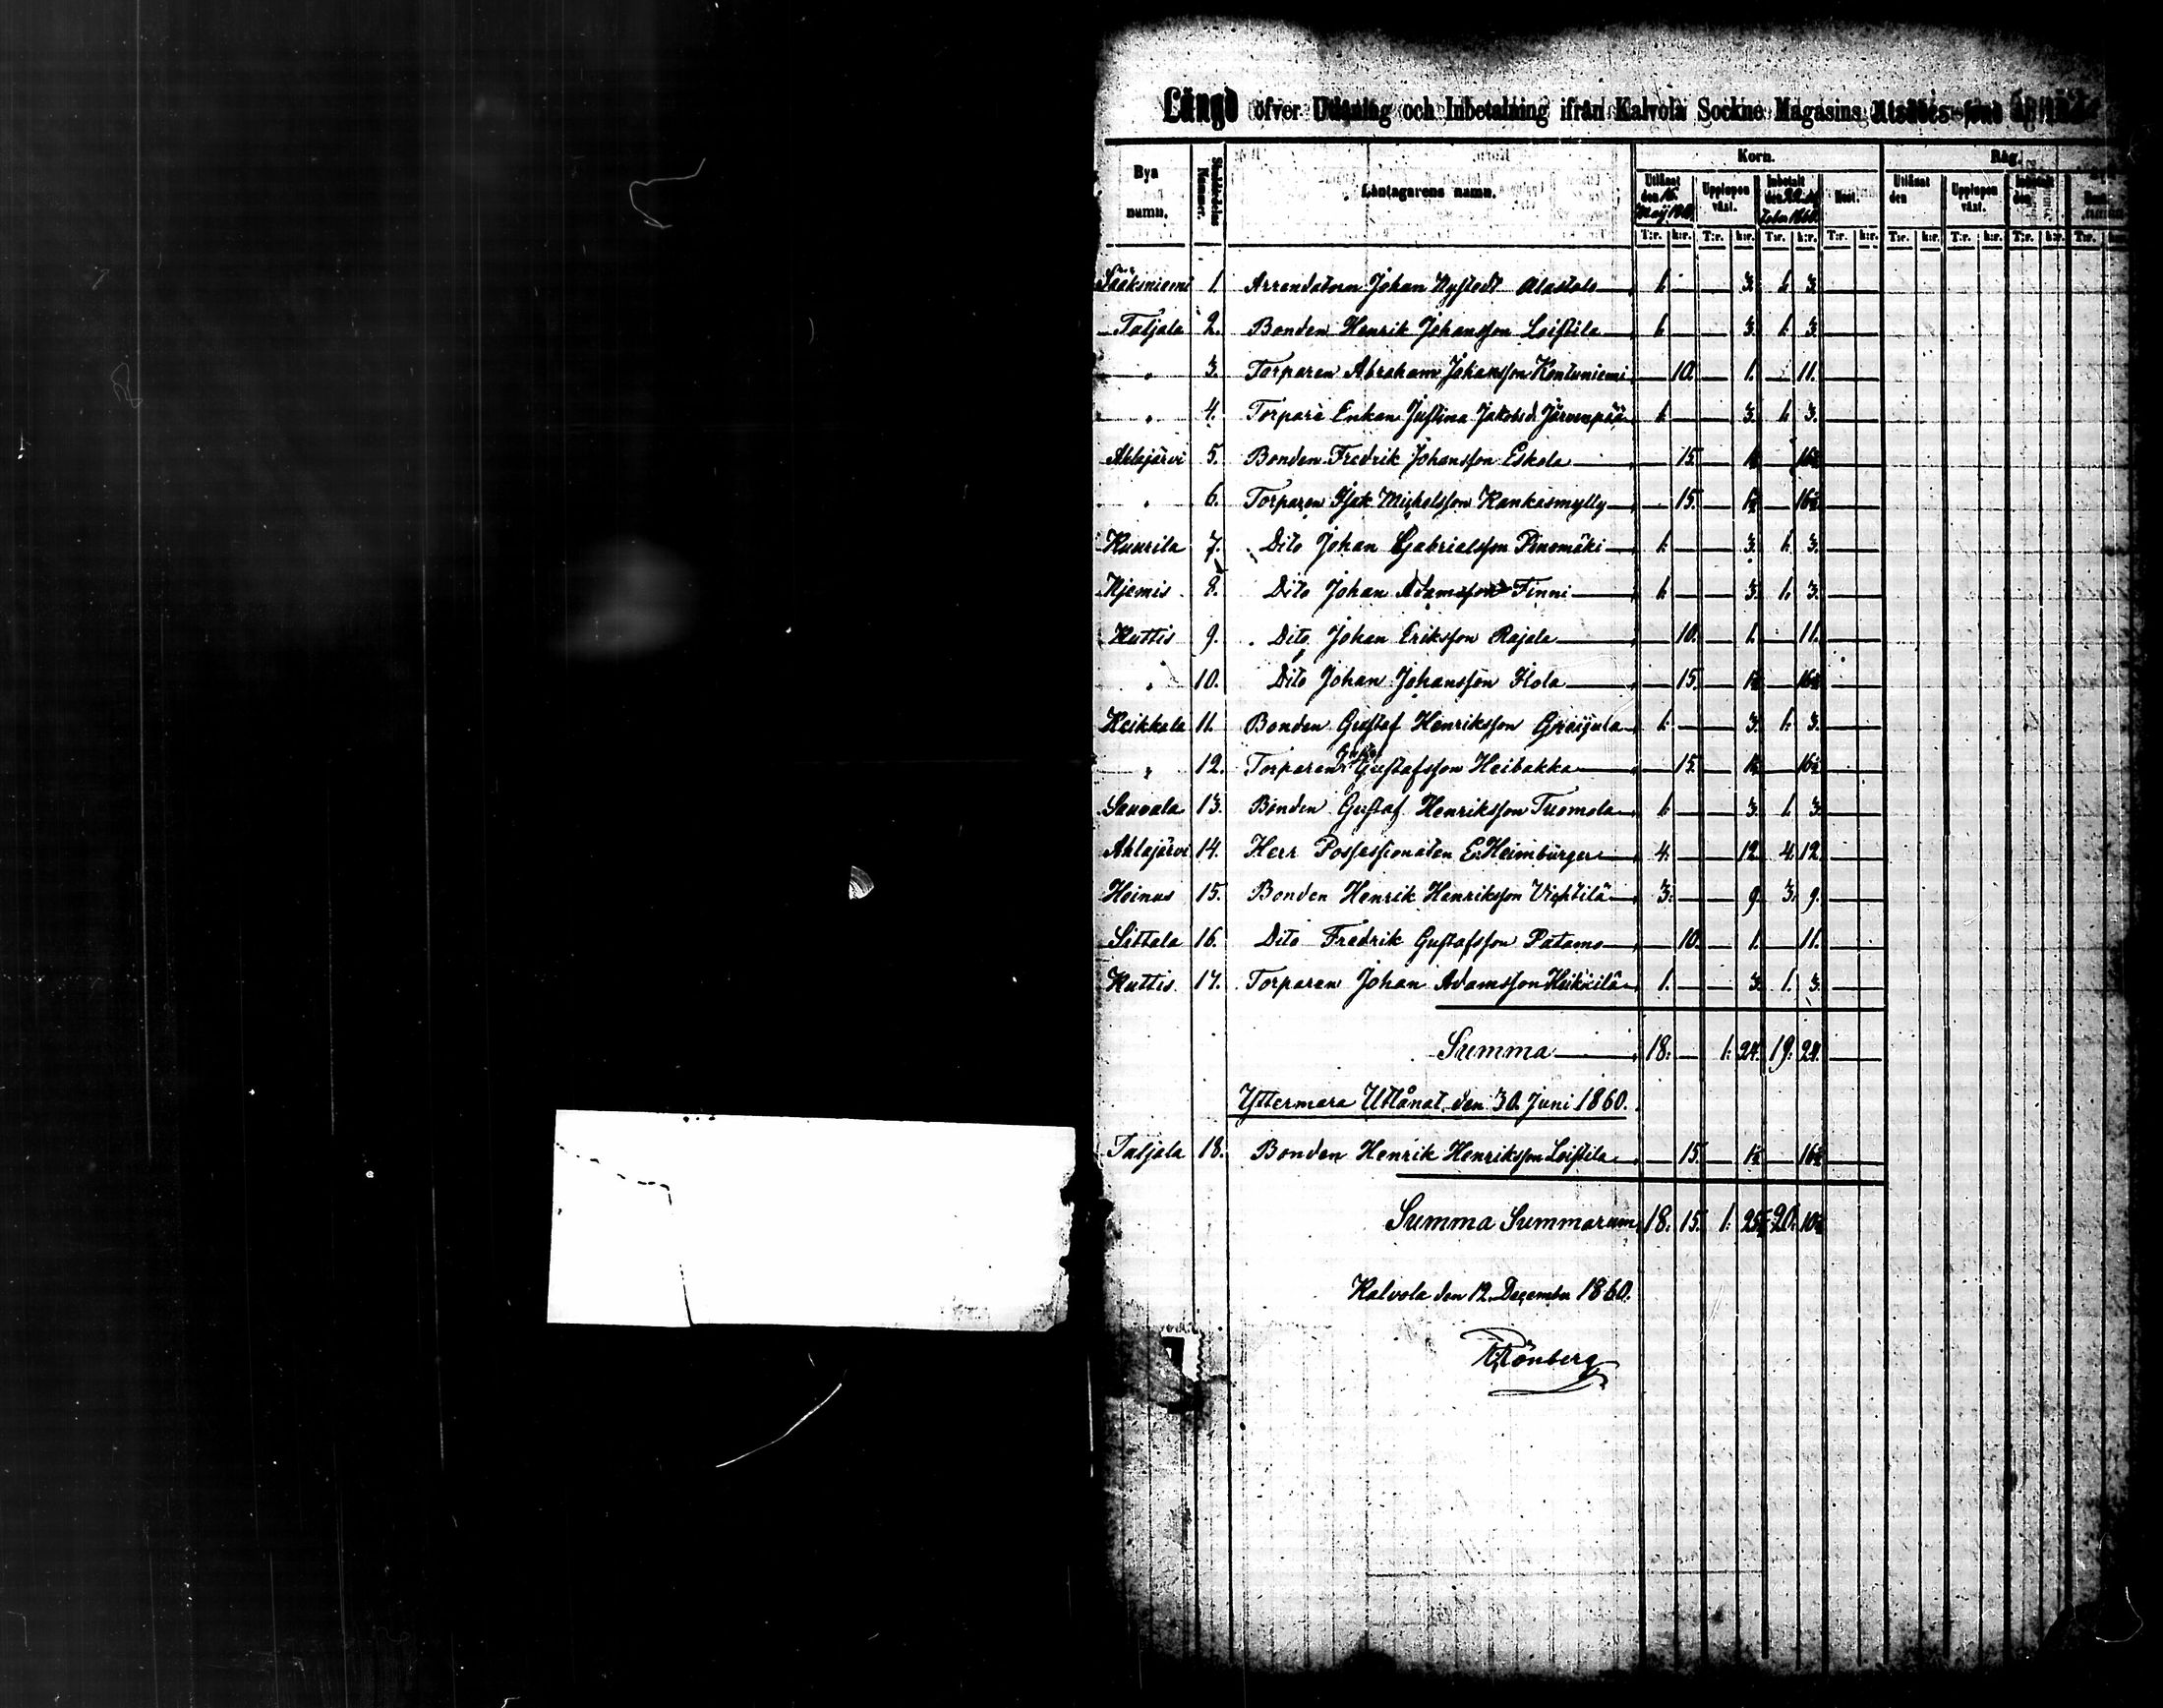 Längd öfver Utlåning och Inbetalning ifrån Kalvola Sockne Magasins Utsädes-fond
Korn. Råg.
Bya namn. Skuldsedelns Nummer. Låntagarens namn. Utlånt den 16 Maij 1860 Upplupen växt. Inbetalt den Rest. Utlånt den Upplupen växt. Inbetalt den Rest.
T:r. k:r. T:r. k:r. T:r. k:r. T:r. k:r. T:r. k:r. T:r. k:r. T:r. k:r. T:r. k:r.
Sääksniemi 1. Arrendatorn Johan Nystedt Alastalo 1. — — 3. 1. 3. —
Taljala 2. Bonden Henrik Johansson Leistila 1. — — 3. 1. 3. —
" 3. Torparen Abraham Johansson Kontuniemi — 10. — 1. — 11. —
" 4. Torpare Enkan Justina Jakobsd. Järvenpää 1. — — 3. 1. 3. —
Ahlajärvi 5. Bonden Fredrik Johansson Eskola — 15. — 1½ — 16½ —
" 6. Torparen Isak Michelsson Kankasmylly — 15. — 1½ — 16½ —
Kuurila 7. Dito Johan Gabrielsson Pinomäki 1. — — 3. 1. 3. —
Niemis 8. Dito Johan Adamsson Finni 1. — — 3. 1. 3. —
Kuttis 9. Dito Johan Eriksson Rajala — 10. — 1. — 11. —
" 10. Dito Johan Johansson Ilola — 15. — 1½ — 16½ —
Keikkala 11. Bonden Gustaf Henriksson Greijula 1. — — 3. 1. 3. —
" 12. Torparen Gustafsson Heibakka — 15. — 1½ — 16½ —
Sauvala 13. Bonden Gustaf Henriksson Tuomola 1. — — 3. 1. 3. —
Ahlajärvi 14. Herr Possessionaten E. Heimbürger 4. — — 12. 4. 12. —
Heinus 15. Bonden Henrik Henriksson Vichtilä 3. — — 9. 3. 9. —
Sittala 16. Dito Fredrik Gustafsson Patamo — 10. — 1. — 11. —
Kuttis 17. Torparen Johan Adamsson Heikkilä 1. — — 3. 1. 3. —
Summa 18. — 1. 24. 19. 24. —
Yttermera Utlånat den 30 Juni 1860.
Taljala 18. Bonden Henrik Henriksson Leistila — 15. — 1½ — 16½ —
Summa Summarum 18. 15. 1. 25½ 20. 10½
Kalvola den 12 December 1860.